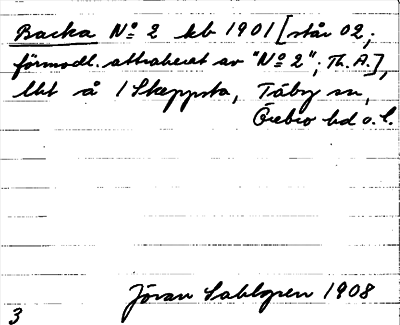 Backa No 2 kb 1901 [står 02;
förmodl. attraherat av "No 2"; Th. A.],
lht å 1 Skeppsta, Täby sn,
Örebro hd o. l.
Jöran Sahlgren 1908
3